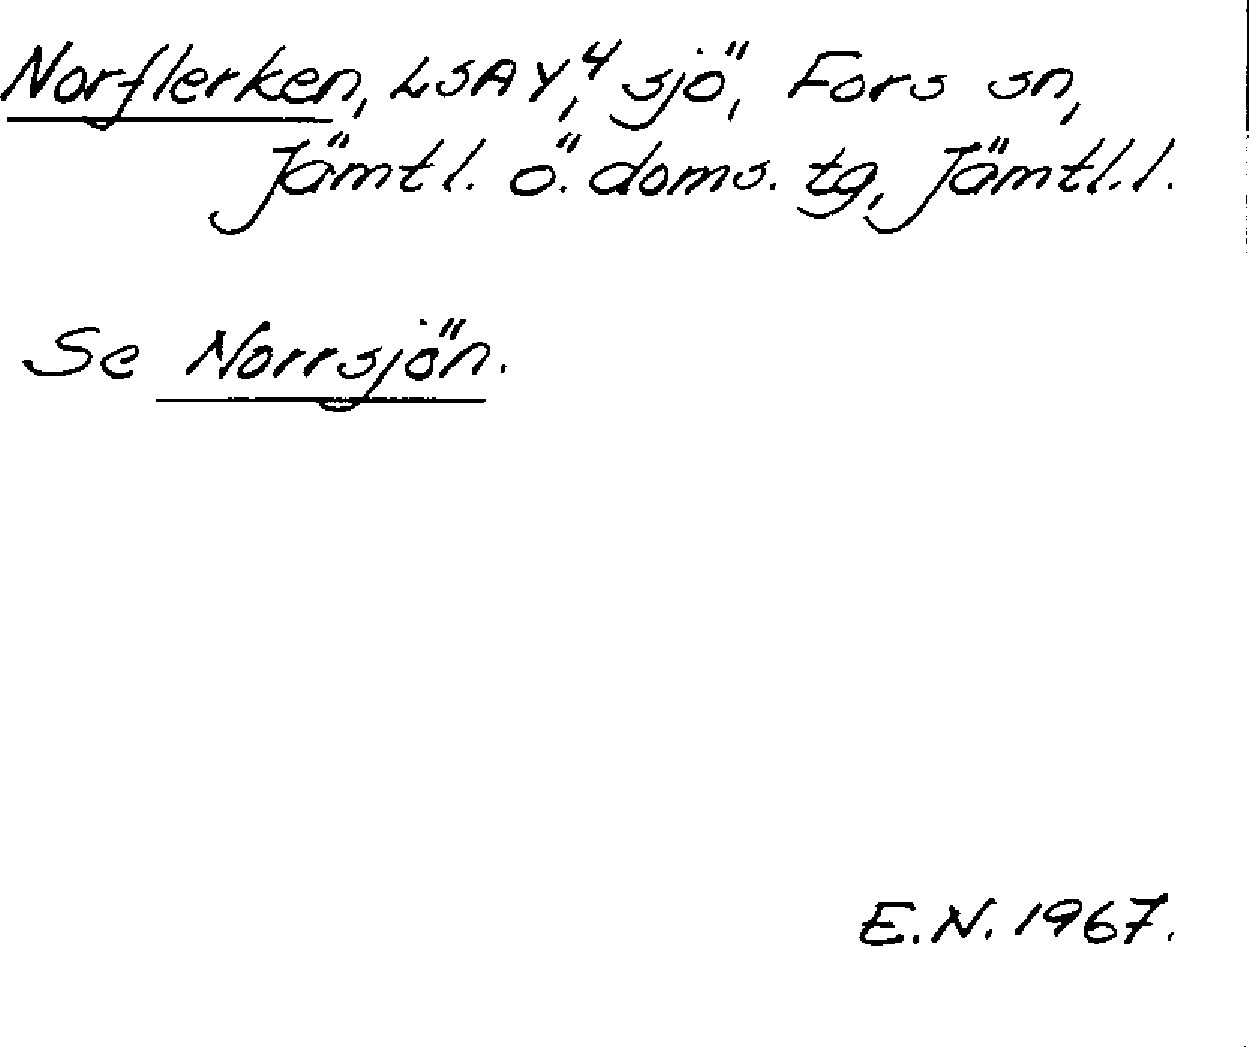 Norflerken, LSA Y,4 sjö, Fors sn,
Jämtl. ö. doms. tg, Jämtl. l.
Se Norrsjön.
E.N. 1967.